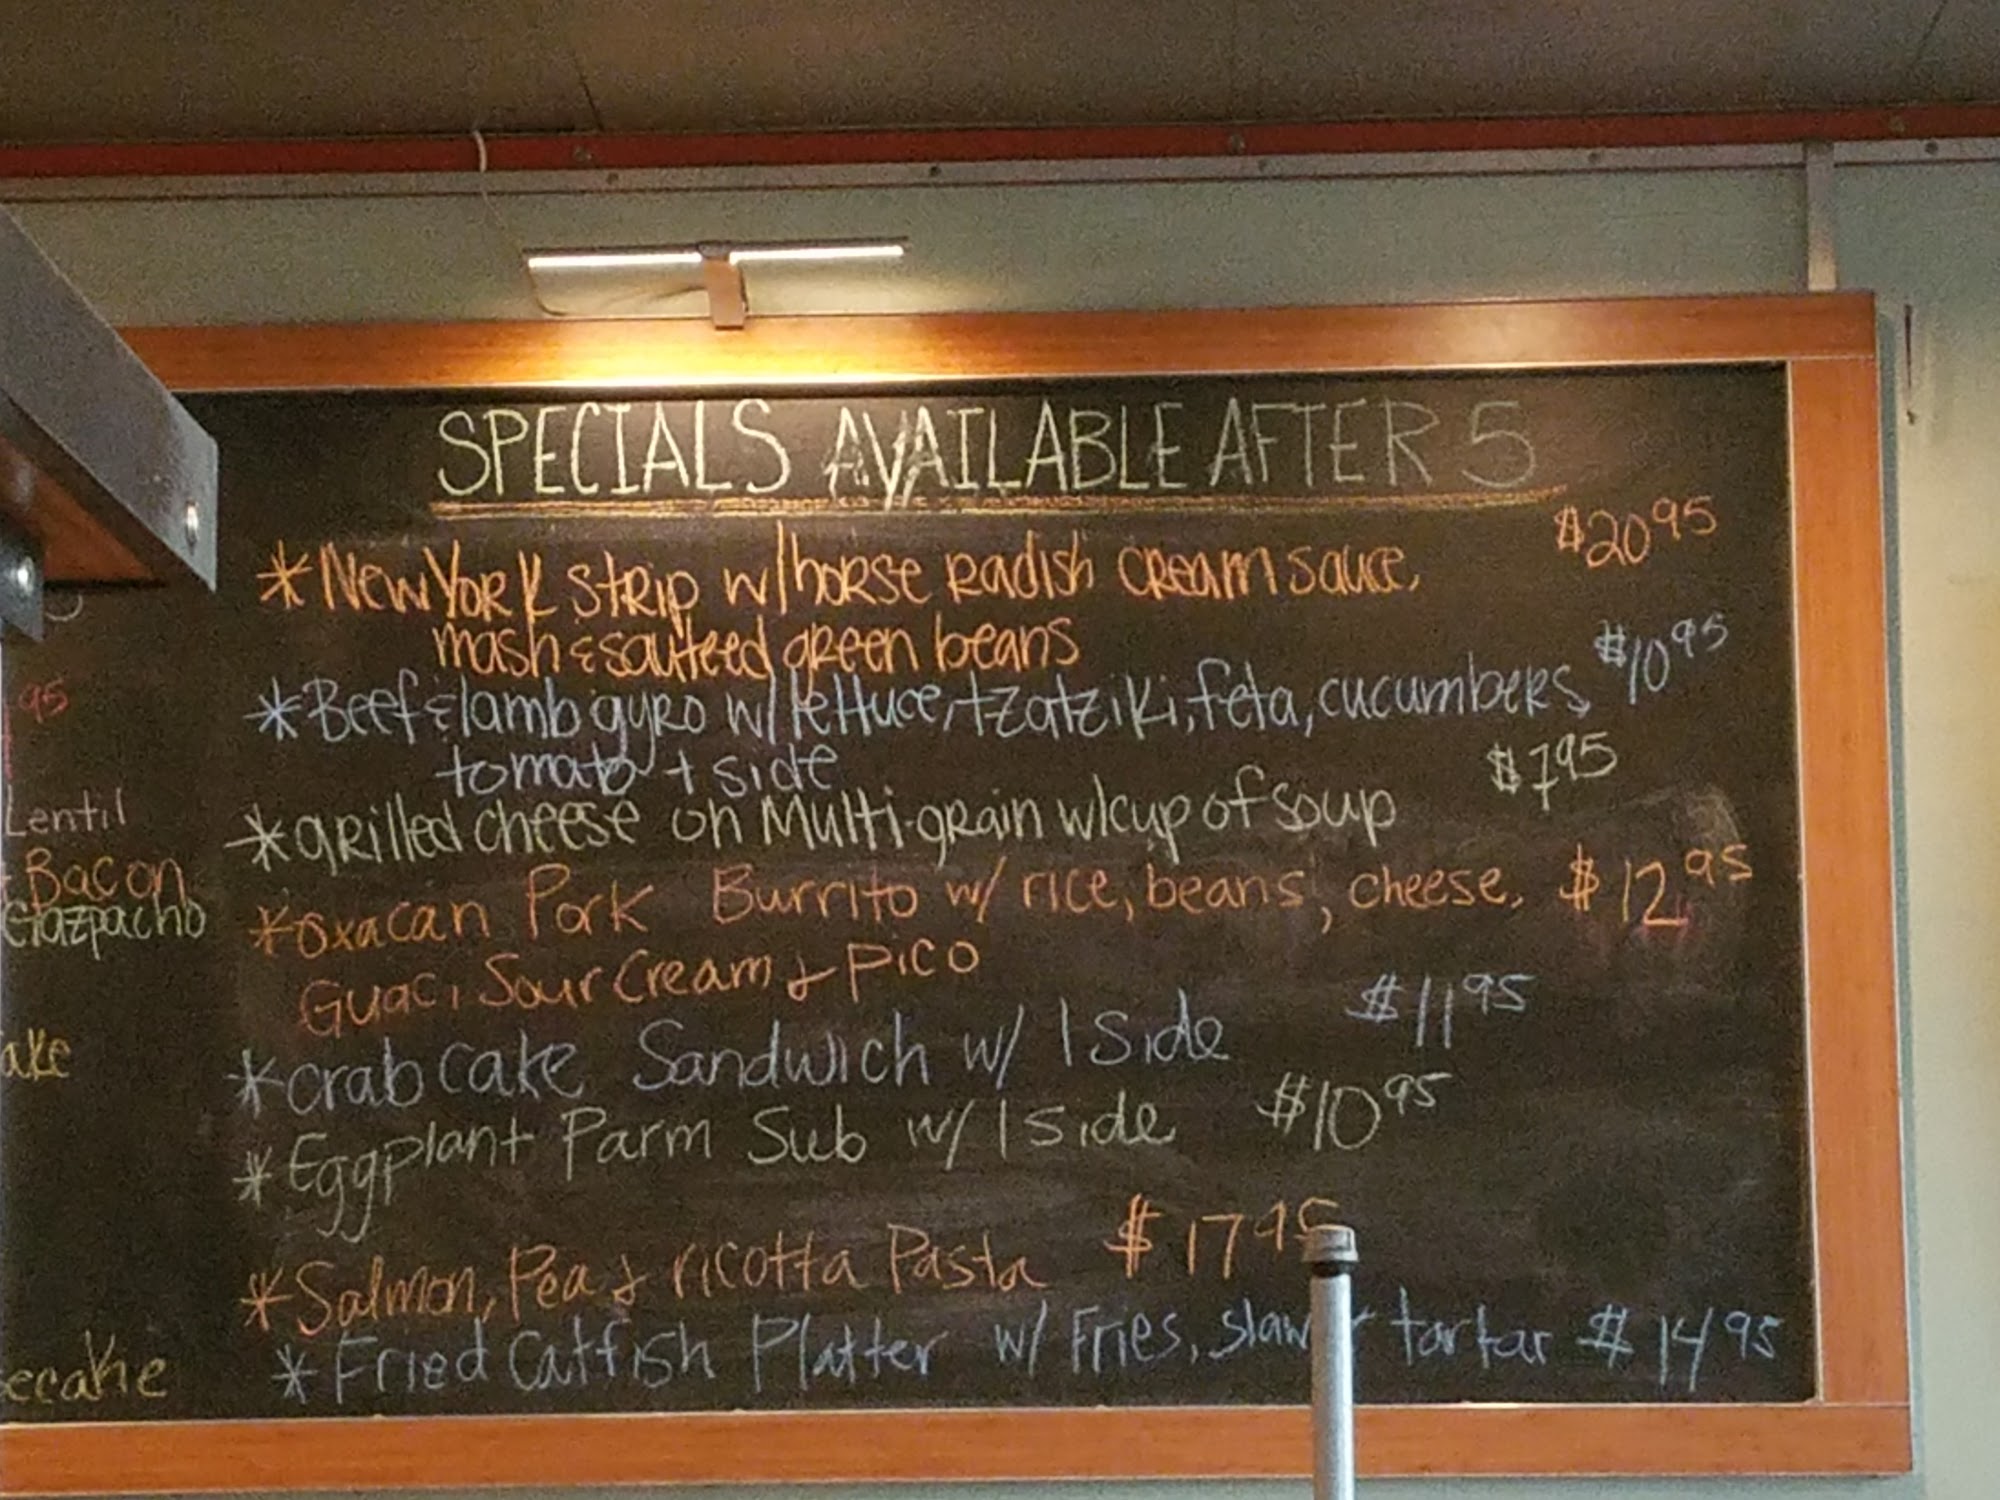 SPECIALS AVAILABLE AFTER 5
*New York Strip w/horse radish cream sauce, $20 95
mash & sauteed green beans
*Beef & lamb gyro w/ lettuce, tzatziki, feta, cucumbers, $10 95
tomato + side
*grilled cheese on Multi-grain w/cup of soup $7 95
*oxacan Pork Burrito w/ rice, beans, cheese, $12 95
Guac, Sour Cream & pico
*crab cake Sandwich w/ 1 side $11 95
*Eggplant Parm Sub w/ 1 side $10 95
*Salmon, Pea & ricotta Pasta $17 95
*Fried Catfish Platter w/ Fries, slaw tartar $14 95
95
Lentil
Bacon
Gazpacho
ake
ecake